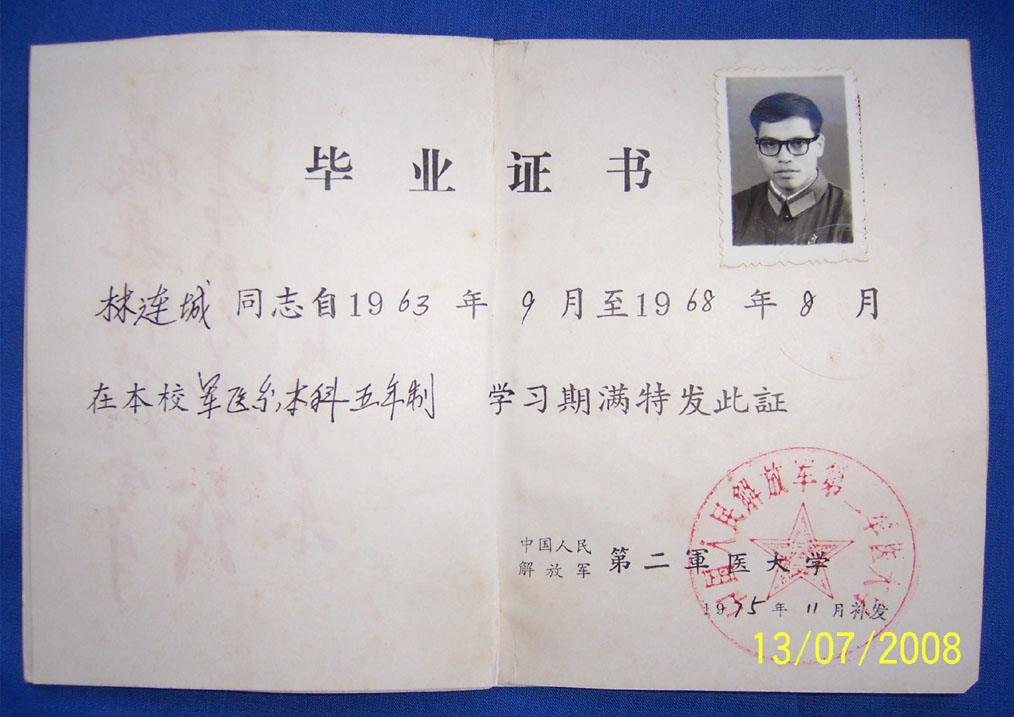 毕业证书
林连城 同志自1963年9月至1968年8月
在本校军医系本科五年制 学习期满特发此証
中国人民
解放军 第二軍医大学
1975年11月补发
13/07/2008